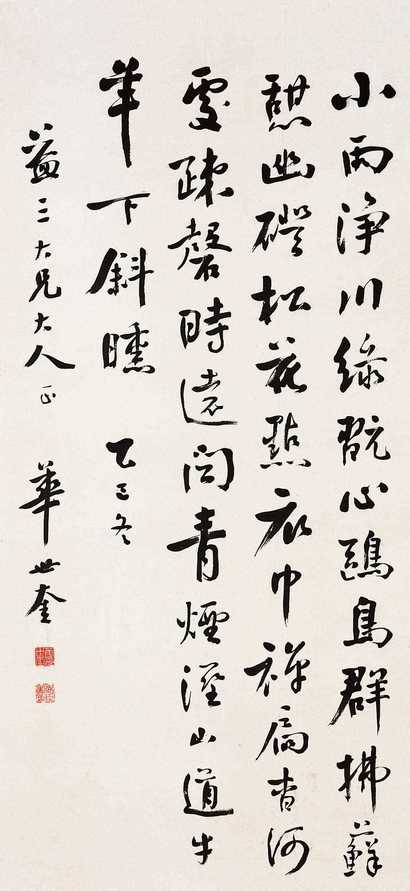 小雨淨川綠翫心鷗鳥群拂蘚
憩幽磴松花點衣巾禪扃杳何
處疎磬時遠聞青煙溼山道牛
羊下斜曛 乙 冬
益三大兄大人正 華世奎